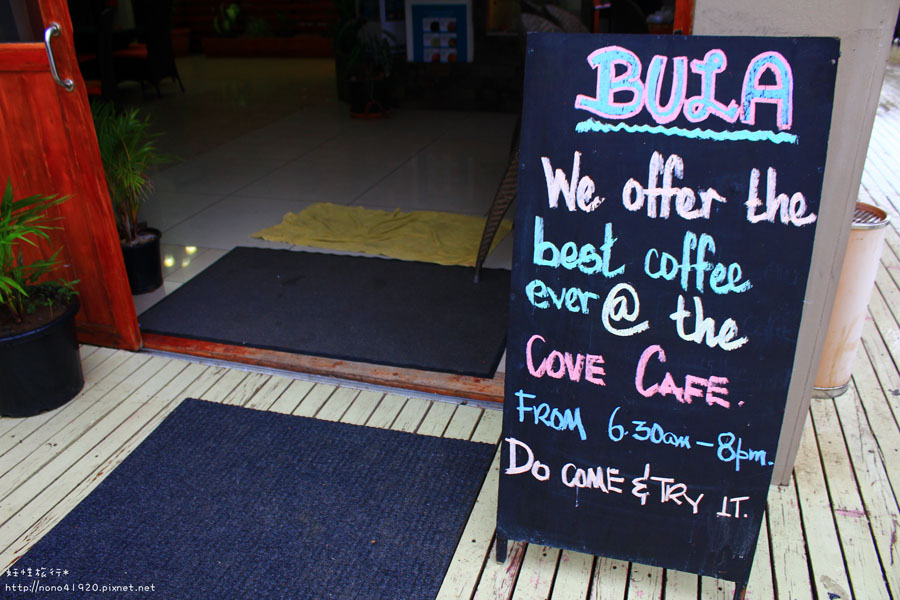 BULA
We offer the
best coffee
ever @ the
COVE CAFE.
FROM 6.30am – 8pm.
DO COME & TRY IT.
妖性旅行*
http://nono41920.pixnet.net